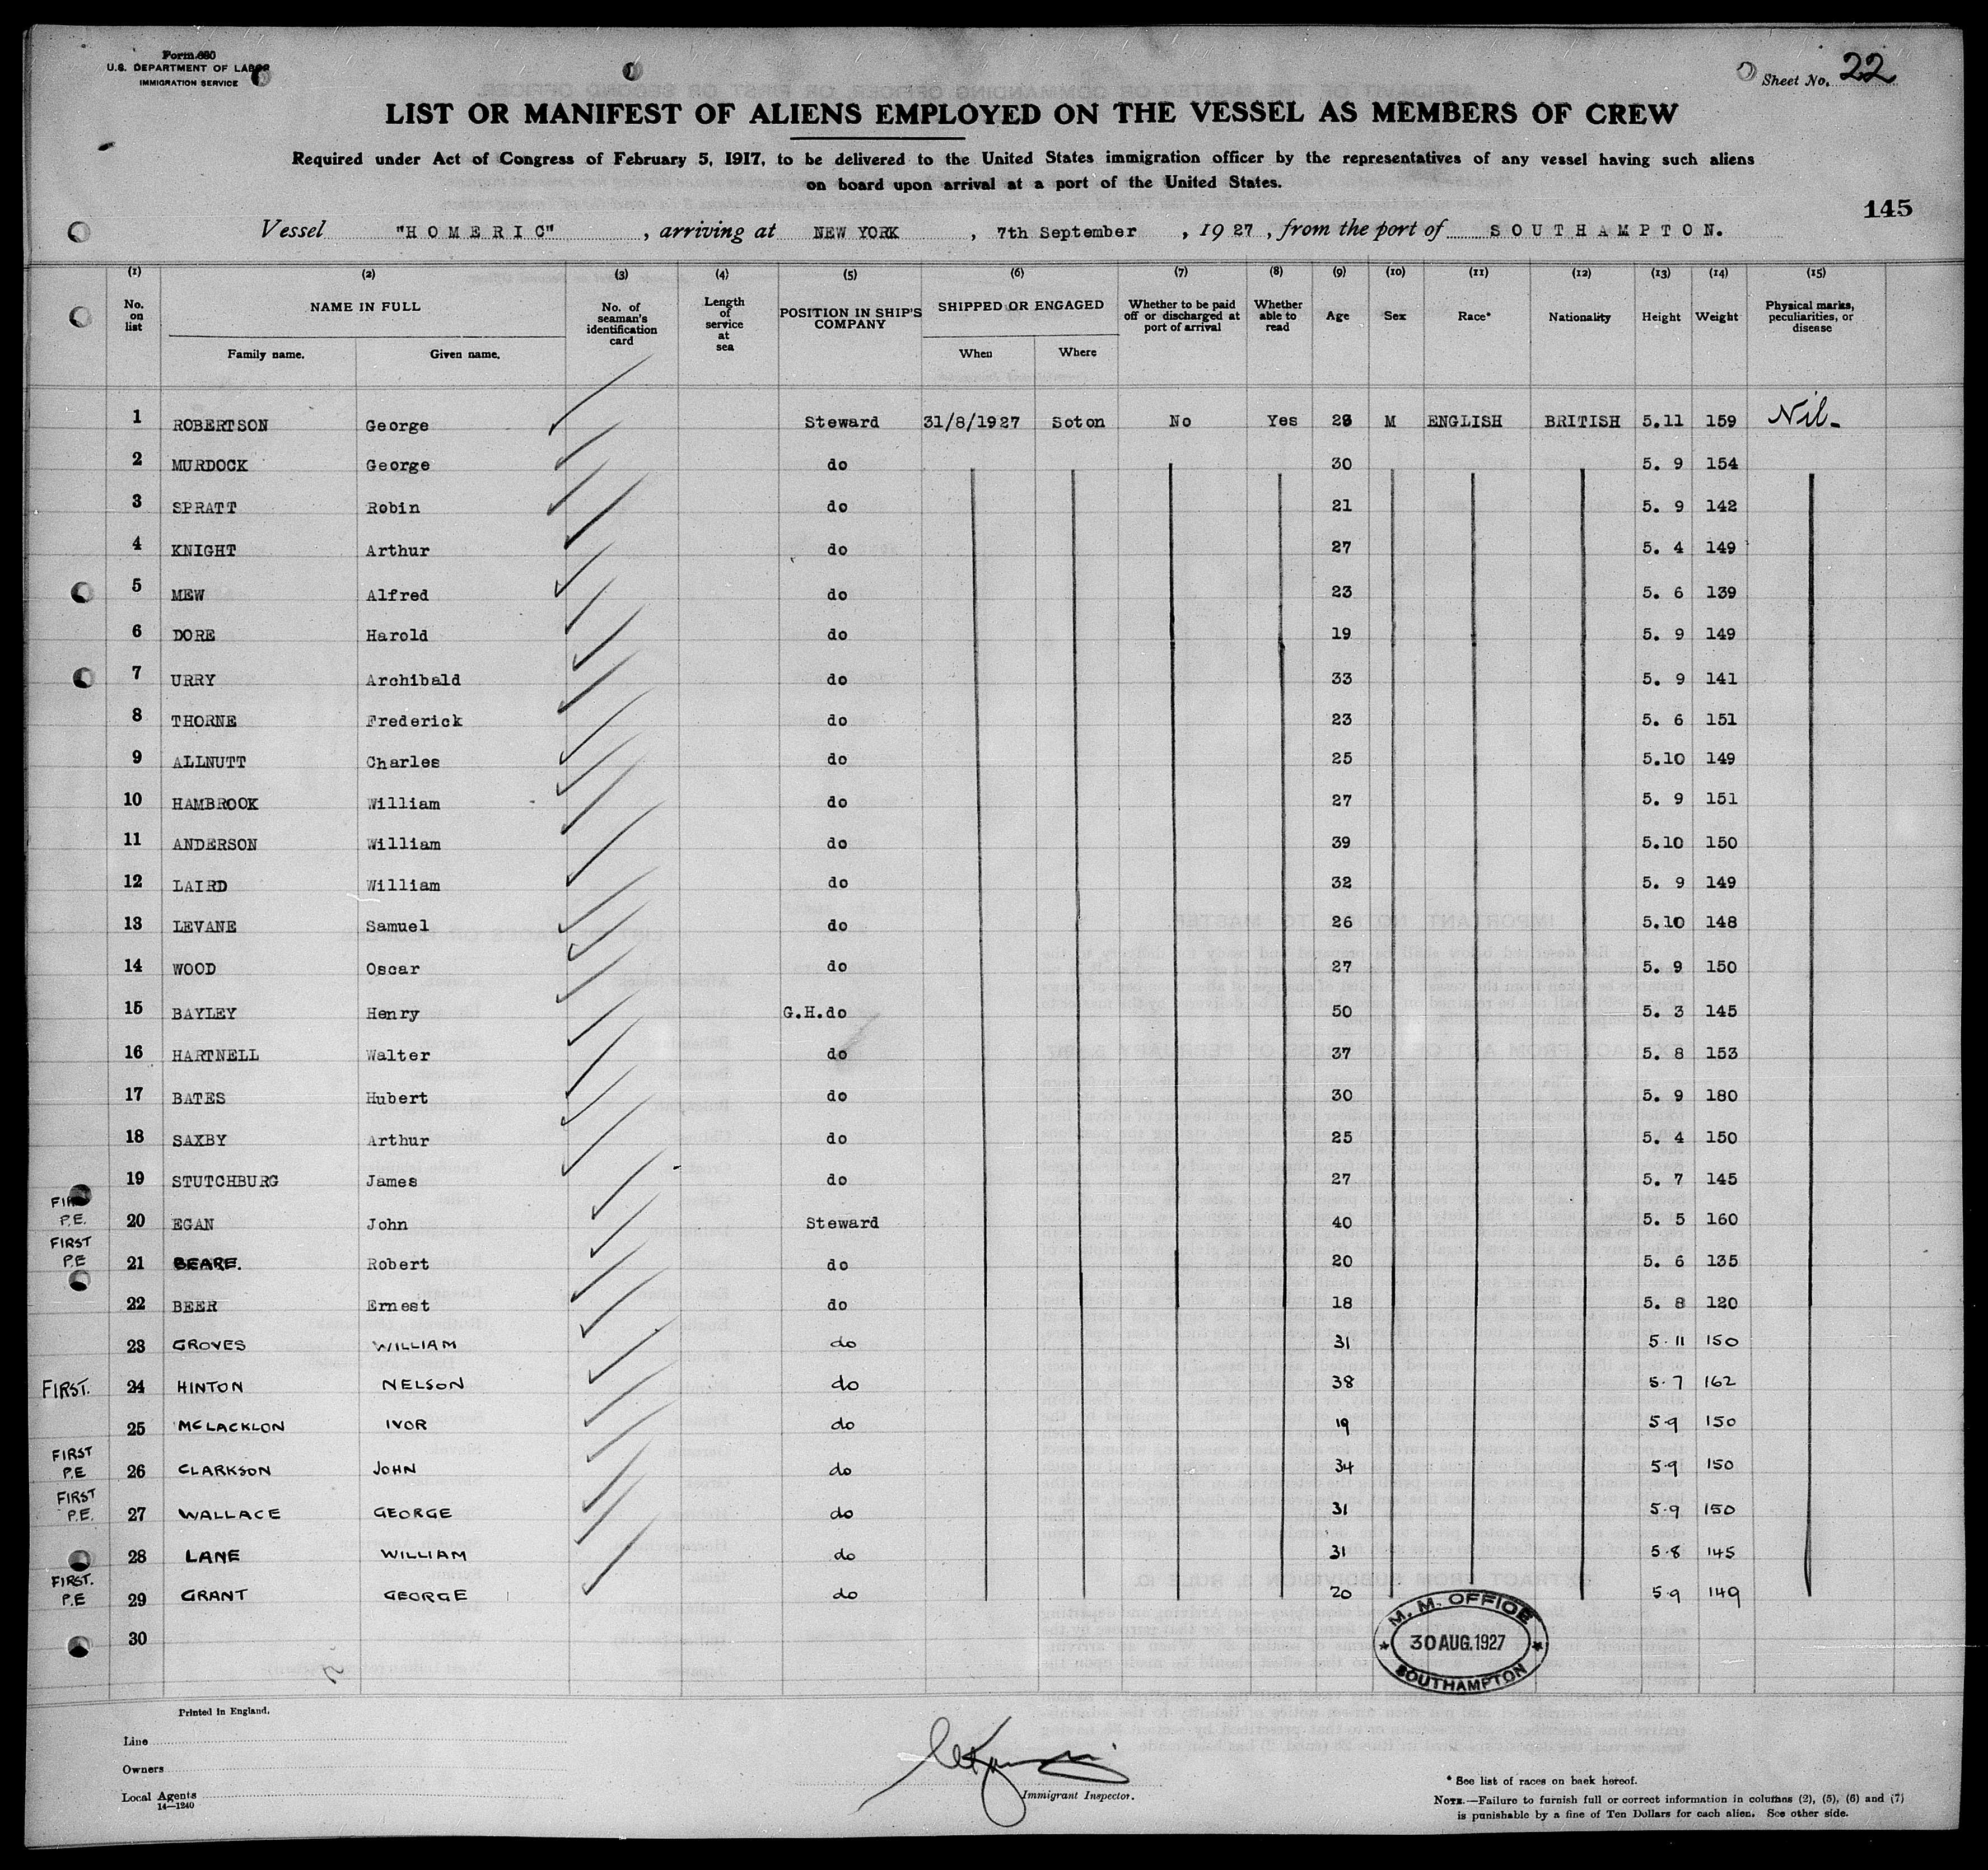 Form 680
U.S. DEPARTMENT OF LABOR
IMMIGRATION SERVICE
Sheet No. 22
LIST OR MANIFEST OF ALIENS EMPLOYED ON THE VESSEL AS MEMBERS OF CREW
Required under Act of Congress of February 5, 1917, to be delivered to the United States immigration officer by the representatives of any vessel having such aliens
on board upon arrival at a port of the United States.
145
Vessel "HOMERIC", arriving at NEW YORK, 7th September, 1927, from the port of SOUTHAMPTON.
(1) (2) (3) (4) (5) (6) (7) (8) (9) (10) (11) (12) (13) (14) (15)
No. on list NAME IN FULL Family name. Given name. No. of seaman's identification card Length of service at sea POSITION IN SHIP'S COMPANY SHIPPED OR ENGAGED When Where Whether to be paid off or discharged at port of arrival Whether able to read Age Sex Race* Nationality Height Weight Physical marks, peculiarities, or disease
1 ROBERTSON George Steward 31/8/1927 Soton No Yes M ENGLISH BRITISH 5.11 159 Nil-
2 MURDOCK George do 30 5. 9 154
3 SPRATT Robin do 21 5. 9 142
4 KNIGHT Arthur do 27 5. 4 149
5 MEW Alfred do 23 5. 6 139
6 DORE Harold do 19 5. 9 149
7 URRY Archibald do 33 5. 9 141
8 THORNE Frederick do 23 5. 6 151
9 ALLNUTT Charles do 25 5.10 149
10 HAMBROOK William do 27 5. 9 151
11 ANDERSON William do 39 5.10 150
12 LAIRD William do 32 5. 9 149
13 LEVANE Samuel do 26 5.10 148
14 WOOD Oscar do 27 5. 9 150
15 BAYLEY Henry G.H.do 50 5. 3 145
16 HARTNELL Walter do 37 5. 8 153
17 BATES Hubert do 30 5. 9 180
18 SAXBY Arthur do 25 5. 4 150
19 STUTCHBURG James do 27 5. 7 145
FIRST P.E. 20 EGAN John Steward 40 5. 5 160
FIRST P.E 21 BEARE. Robert do 20 5. 6 135
22 BEER Ernest do 18 5. 8 120
23 GROVES WILLIAM do 31 5.11 150
FIRST. 24 HINTON NELSON do 38 5.7 162
25 MCLACKLON IVOR do 19 5.9 150
FIRST P.E 26 CLARKSON JOHN do 34 5.9 150
FIRST P.E. 27 WALLACE GEORGE do 31 5.9 150
28 LANE WILLIAM do 31 5.8 145
FIRST. P.E 29 GRANT GEORGE do 20 5.9 149
30
M. M. OFFICE
30 AUG. 1927
SOUTHAMPTON
Printed in England.
Line
Owners
Local Agents
14—1240
Immigrant Inspector.
* See list of races on back hereof.
NOTE.—Failure to furnish full or correct information in columns (2), (5), (6) and (7)
is punishable by a fine of Ten Dollars for each alien. See other side.